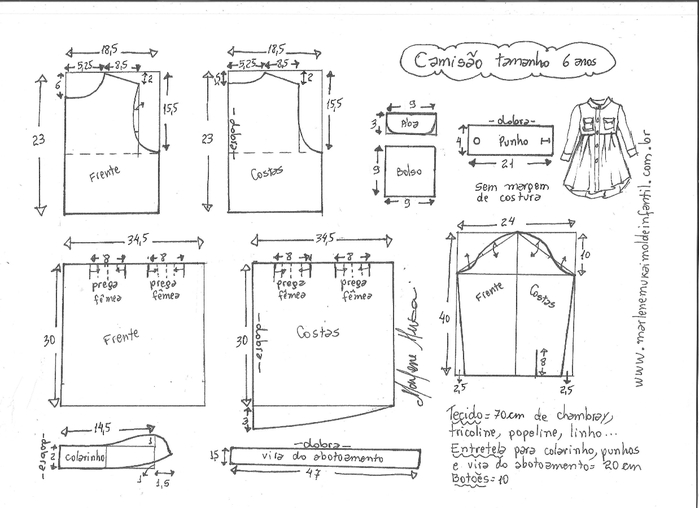 Camisão tamanho 6 anos
18,5
5,25 8,5
6
2
15,5
23
Frente
18,5
5,25 8,5
2
15,5
23
-dobra-
Costas
9
3
Aba
9
Bolso
9
-dobra-
4
Punho
21
sem margem
de costura
www.marlenemukaimoldeinfantil.com.br
34,5
8 8
prega prega
fêmea fêmea
30
Frente
34,5
8 8
prega prega
fêmea fêmea
30
-dobra-
Costas
3
Marlene Mukai
24
10
Frente
Costas
40
8
2,5 2,5
14,5
-dobra-
2
colarinho
1
1
1,5
-dobra-
vira do abotoamento
47
Tecido = 70cm de chambray,
tricoline, popeline, linho...
Entretela para colarinho, punhos
e vira do abotoamento = 20 cm
Botões = 10